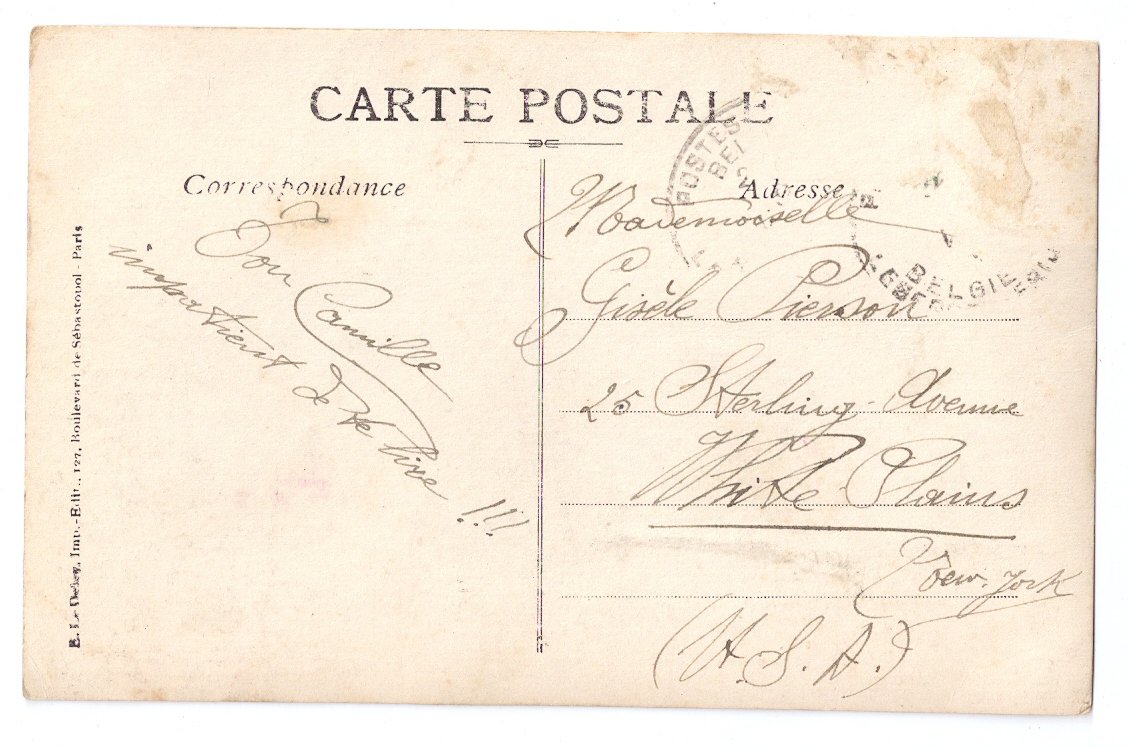 CARTE POSTALE
Correspondance
Adresse
Ton Camille
impatient de te lire !!!
Mademoiselle
Gisèle Pierson
25 Sterling Avenue
White Plains
New-York
(U.S.A.)
E. Le Deley, Imp.-Edit., 127, Boulevard de Sébastopol - Paris
POSTES
BELGIE